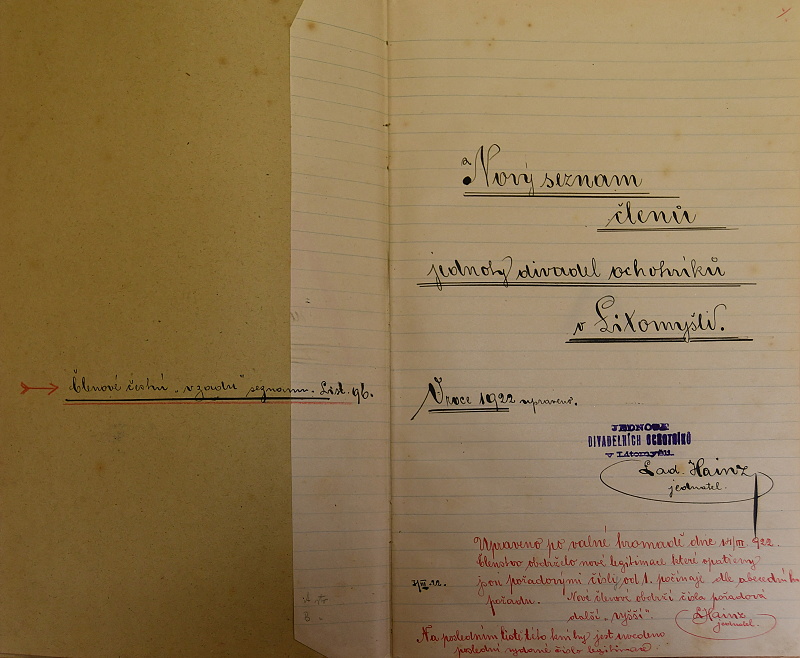 Členové čestní „vzadu“ seznamu. List 96.
Nový seznam
členů
jednoty divadel ochotníků
v Litomyšli.
V roce 1922 upraveno.
JEDNOTA
DIVADELNÍCH OCHOTNÍKŮ
v Litomyšli
Lad. Hainz
jednatel.
Upraveno po valné hromadě dne 1/III. 922.
Členstvo obdrželo nové legitimace které opatřeny
jsou pořadovými čísly od 1. počínaje dle abecedního
pořadu. Nové členové obdrží čísla pořadová
další „vyšší“.
LHainz
jednatel.
Na posledním listě této knihy jest uvedeno
poslední vydané číslo legitimace.